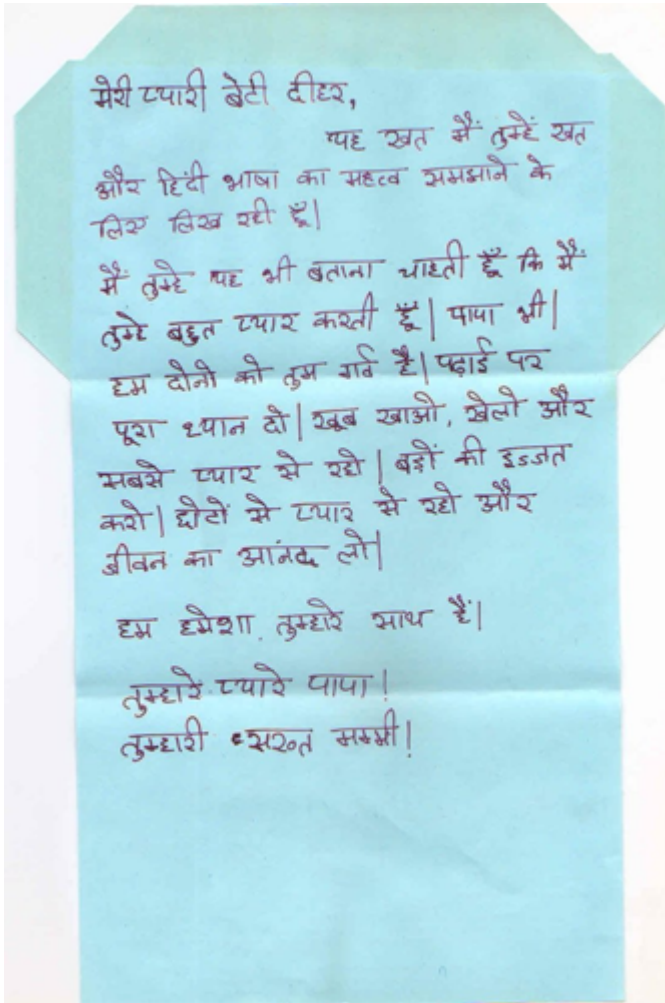 मेरी प्यारी बेटी दीहर,
यह खत मैं तुम्हें खत
और हिंदी भाषा का महत्व समझाने के
लिए लिख रही हूँ|
मैं तुम्हे यह भी बताना चाहती हूँ कि मैं
तुम्हे बहुत प्यार करती हूँ| पापा भी|
हम दोनो को तुम गर्व है| पढ़ाई पर
पूरा ध्यान दो| खूब खाओ, खेलो और
सबसे प्यार से रहो| बड़ों की इज्जत
करो| छोटों से प्यार से रहो और
जीवन का आनंद लो|
हम हमेशा तुम्हारे साथ हैं|
तुम्हारे प्यारे पापा!
तुम्हारी सख्त मम्मी!